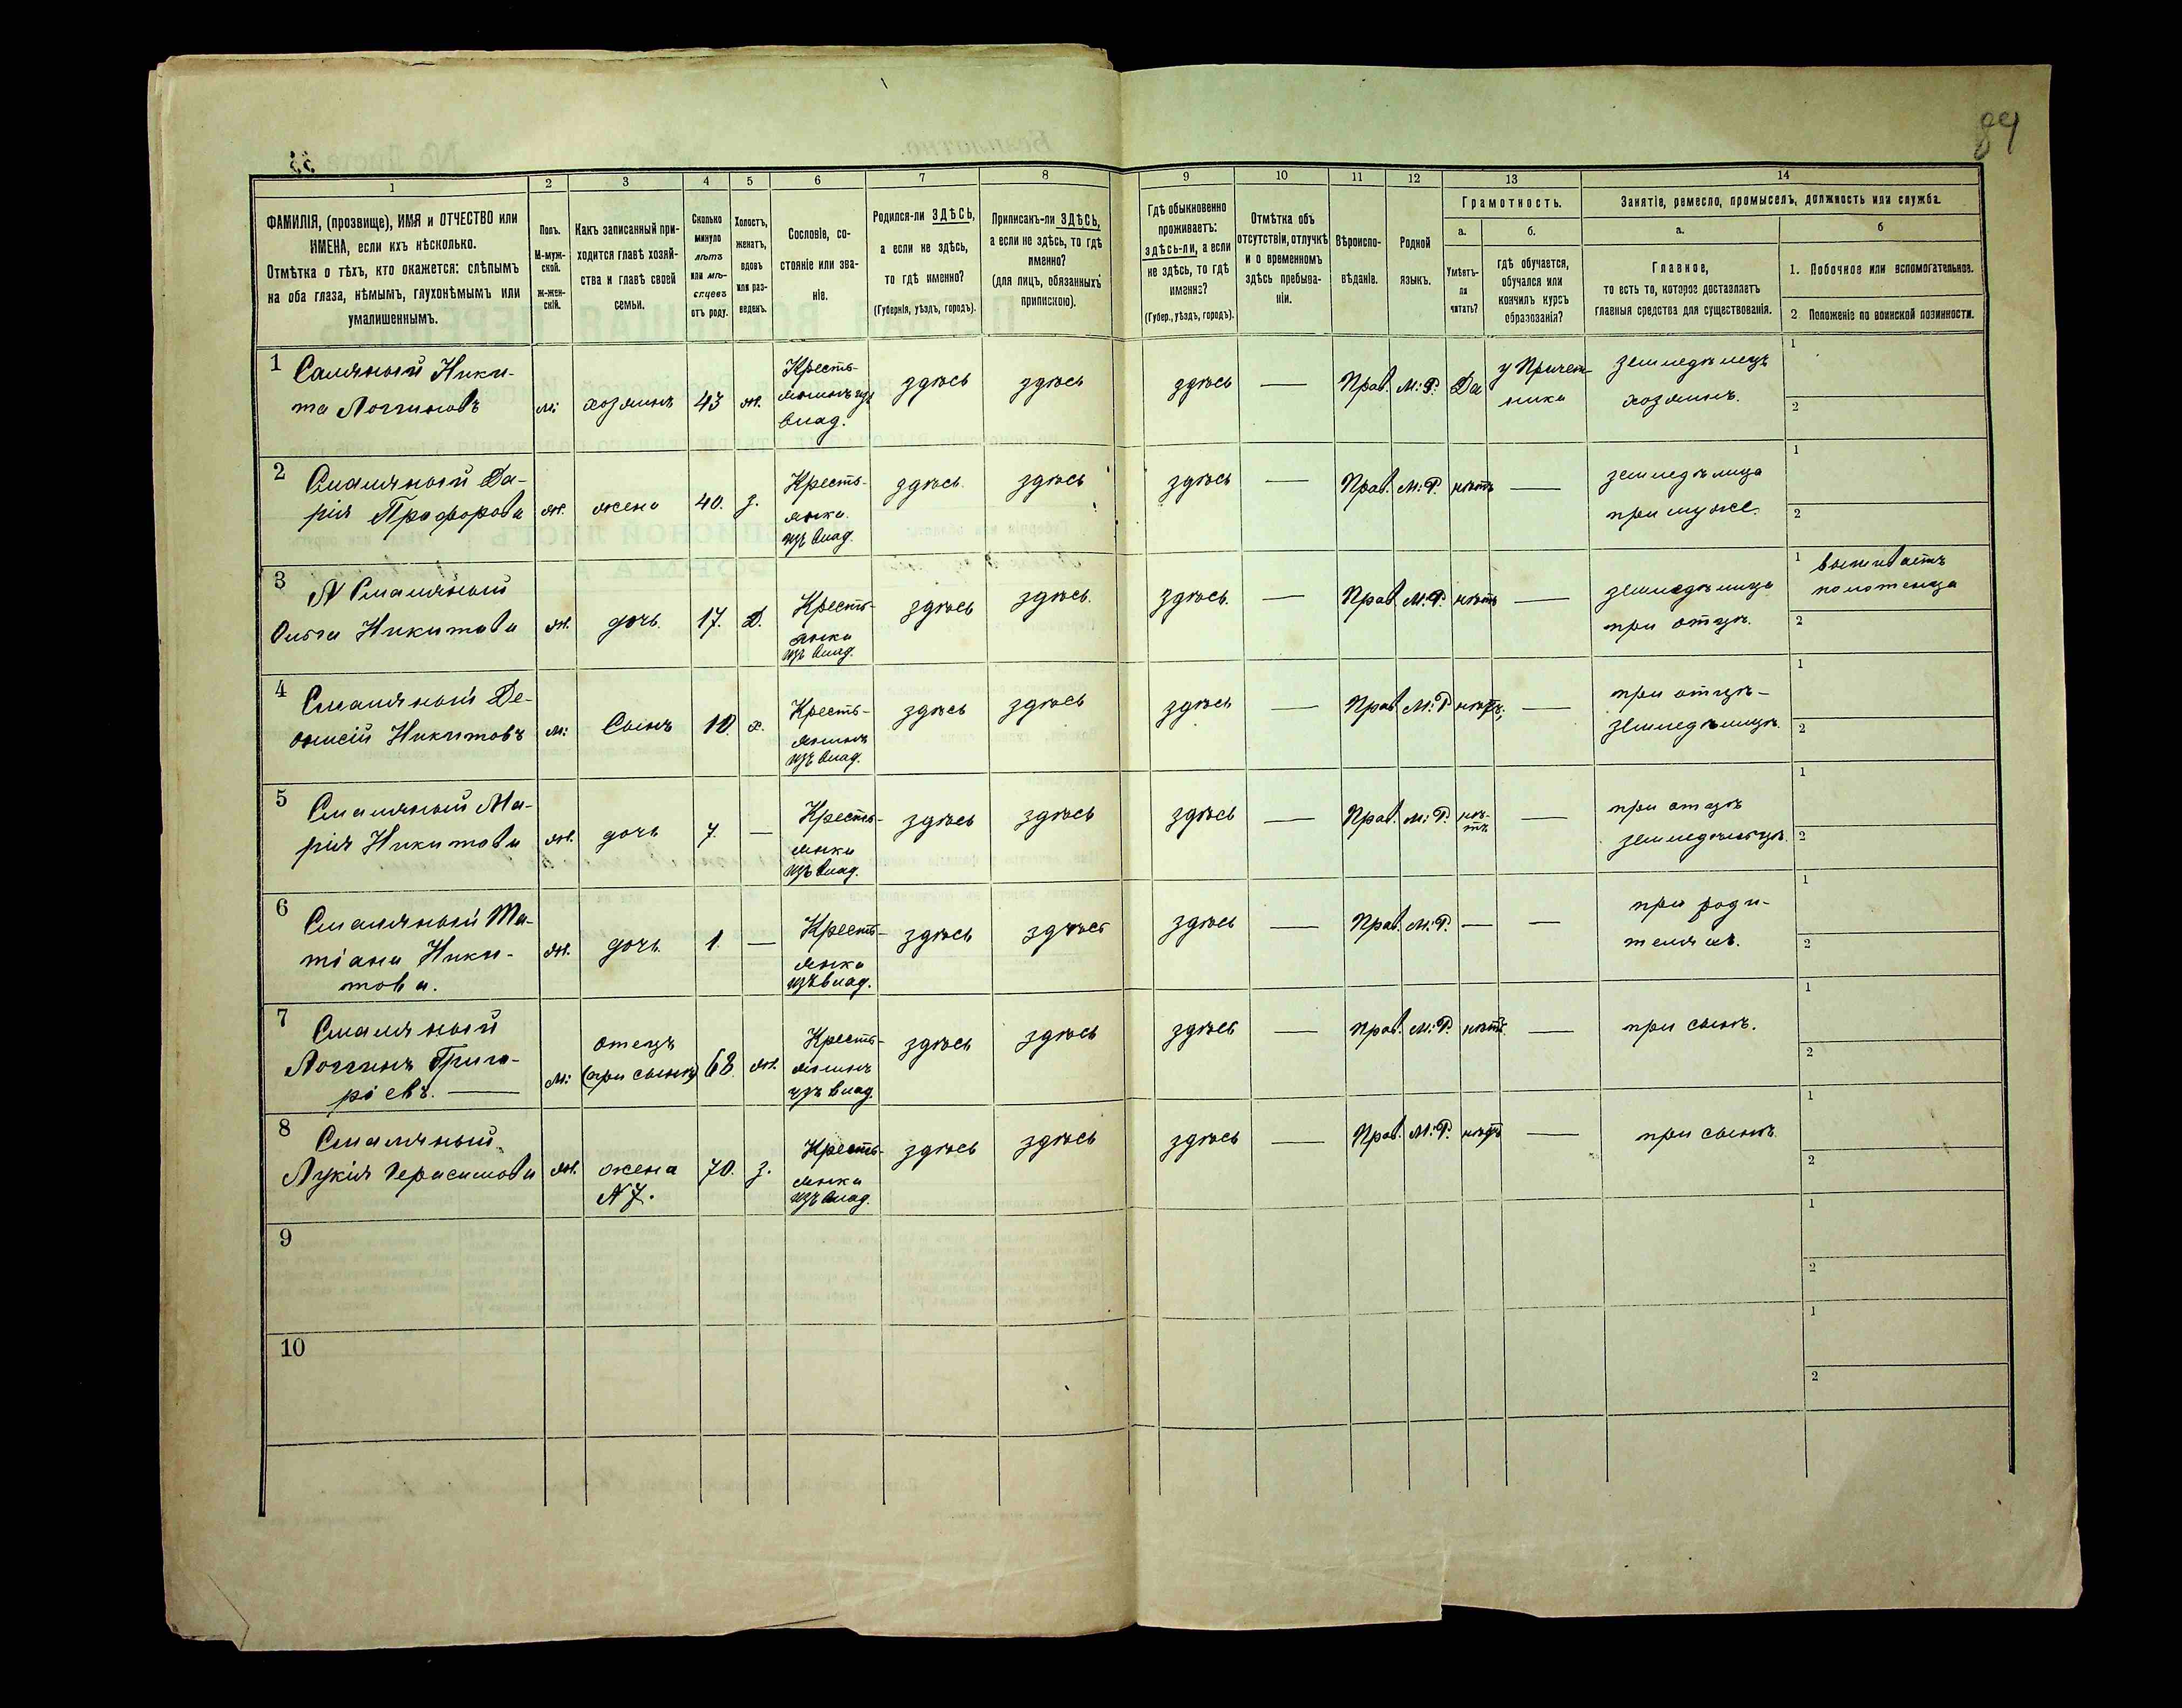 89
1
2
3
4
5
6
7
8
9
10
11
12
13
14
ФАМИЛІЯ, (прозвище), ИМЯ и ОТЧЕСТВО или
ИМЕНА, если ихъ нѣсколько.
Отмѣтка о тѣхъ, кто окажется: слѣпымъ
на оба глаза, нѣмымъ, глухонѣмымъ или
умалишеннымъ.
Полъ.
М-муж-
ской.
Ж-жен-
скій.
Какъ записанный при-
ходится главѣ хозяй-
ства и главѣ своей
семьи.
Сколько
минуло
лѣтъ
или мѣ-
сяцевъ
отъ роду.
Холостъ,
женатъ,
вдовъ
или раз-
веденъ.
Сословіе, со-
стояніе или зва-
ніе.
Родился-ли ЗДѢСЬ,
а если не здѣсь,
то гдѣ именно?
(Губернія, уѣздъ, городъ).
Приписанъ-ли ЗДѢСЬ,
а если не здѣсь, то гдѣ
именно?
(для лицъ, обязанныхъ
припискою).
Гдѣ обыкновенно
проживаетъ:
здѣсь-ли, а если
не здѣсь, то гдѣ
именно?
(Губер., уѣздъ, городъ).
Отмѣтка объ
отсутствіи, отлучкѣ
и о временномъ
здѣсь пребыва-
ніи.
Вѣроиспо-
вѣданіе.
Родной
языкъ.
Грамотность.
а.
Умѣетъ-
ли
читать?
б.
гдѣ обучается,
обучался или
кончилъ курсъ
образованія?
Занятіе, ремесло, промыселъ, должность или служба.
а.
Главное,
то есть то, которое доставляетъ
главныя средства для существованія.
б
1. Побочное или вспомогательное.
2 Положеніе по воинской повинности.
1 Смаляный Ники-
та Логгиновъ
м: хозяинъ 43 ж.
Кресть-
янинъ изъ
влад.
здѣсь здѣсь здѣсь — Прав. М:Р. Да
у Причет-
ника
земледѣлецъ
хозяинъ.
1
2
2 Смаляный Да-
рія Профорова
ж. жена 40. з.
Кресть-
янка
изъ влад.
здѣсь здѣсь здѣсь — Прав. М:Р. нѣтъ —
земледѣлица
при мужѣ.
1
2
3 Смаляный
Ольга Никитова
ж. дочь 17. д.
Кресть-
янка
изъ влад.
здѣсь здѣсь здѣсь — Прав. М:Р. нѣтъ —
земледѣлица
при отцѣ.
1 вышиваетъ
полотенца
2
4 Смаляный Де-
онисій Никитовъ
м: Сынъ 10. х.
Кресть-
янинъ
изъ влад.
здѣсь здѣсь здѣсь — Прав. М:Р. нѣтъ —
при отцѣ-
земледѣльцѣ.
1
2
5 Смаляный Ма-
рія Никитова
ж. дочь 7. —
Кресть-
янка
изъ влад.
здѣсь здѣсь здѣсь — Прав. М:Р. нѣ-
тъ —
при отцѣ
земледѣльцѣ.
1
2
6 Смаляный Та-
тіана Ники-
това.
ж. дочь 1. —
Кресть-
янка
изъ влад.
здѣсь здѣсь здѣсь — Прав. М:Р. — —
при роди-
теляхъ.
1
2
7 Смаляный
Логгинъ Григо-
ріевъ. —
м: отецъ
(при сынѣ) 68. ж.
Кресть-
янинъ
изъ влад.
здѣсь здѣсь здѣсь — Прав. М:Р. нѣтъ —
при сынѣ.
1
2
8 Смаляный
Лукія Герасимова
ж. жена
№7. 70. з.
Кресть-
янка
изъ влад.
здѣсь здѣсь здѣсь — Прав. М:Р. нѣтъ —
при сынѣ
1
2
9
1
2
10
1
2